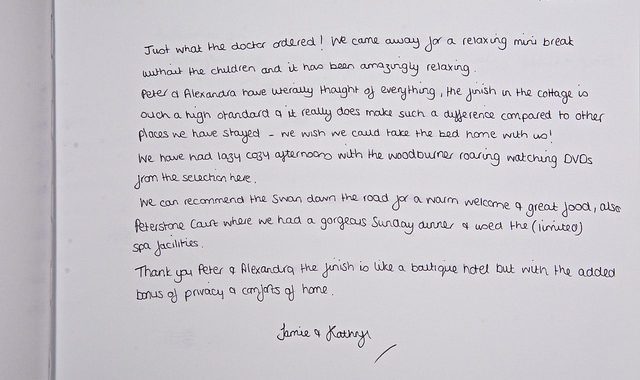 Just what the doctor ordered! We came away for a relaxing mini break
without the children and it has been amazingly relaxing.
Peter & Alexandra have literally thought of everything, the finish in the cottage is
such a high standard & it really does make such a difference compared to other
places we have stayed - we wish we could take the bed home with us!
We have had lazy cozy afternoons with the woodburner roaring watching DVDs
from the selection here.
We can recommend the Swan down the road for a warm welcome & great food, also
Peterstone Court where we had a gorgeous Sunday dinner & used the (limited)
spa facilities.
Thank you Peter & Alexandra, the finish is like a boutique hotel but with the added
bonus of privacy & comforts of home.
Jamie & Kathryn